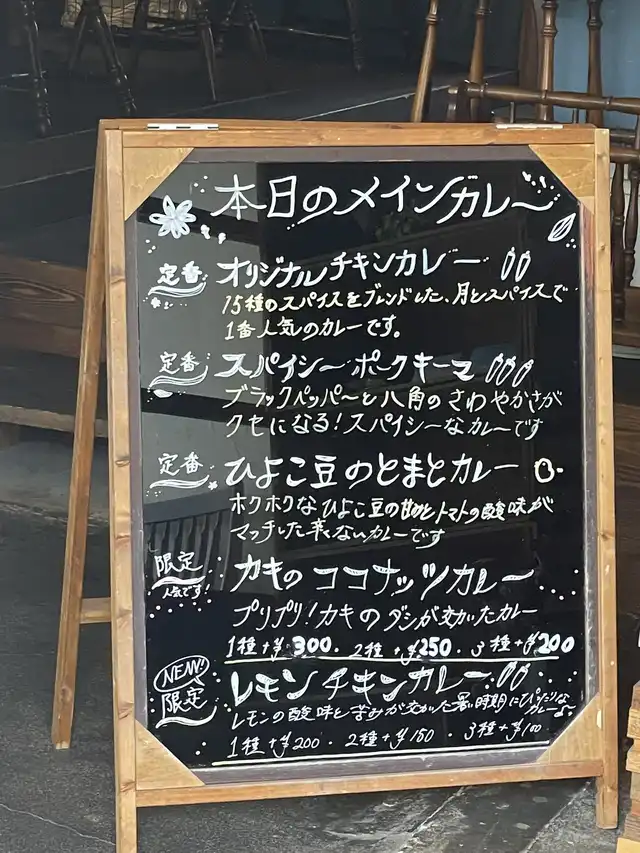 本日のメインカレー
定番 オリジナルチキンカレー
15種のスパイスをブレンドした、月とスパイスで
1番人気のカレーです。
定番 スパイシーポークキーマ
ブラックペッパーと八角のさわやかさが
クセになる!スパイシーなカレーです
定番 ひよこ豆のとまとカレー
ホクホクなひよこ豆の甘味とトマトの酸味が
マッチした辛くないカレーです
限定 カキのココナッツカレー
人気です!
プリプリ!カキのダシが効いたカレー
1種+¥300・2種+¥250・3種+¥200
NEW!
限定 レモンチキンカレー
レモンの酸味と苦みが効いた暑い時期にぴったりな
カレーです。
1種+¥200・2種+¥150・3種+¥100